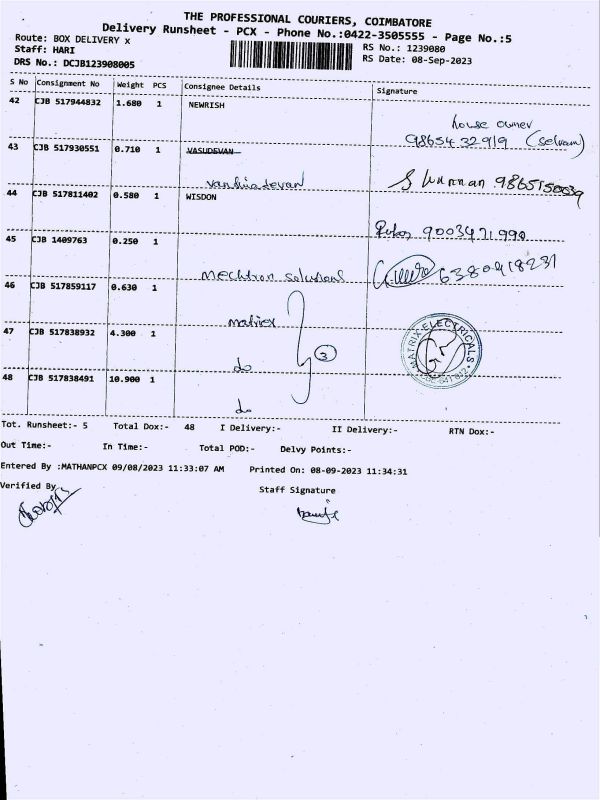 THE PROFESSIONAL COURIERS, COIMBATORE
Delivery Runsheet - PCX - Phone No.:0422-3505555 - Page No.:5
Route: BOX DELIVERY x
RS No.: 1239080
Staff: HARI
RS Date: 08-Sep-2023
DRS No.: DCJB123908005
S No Consignment No Weight PCS Consignee Details Signature
42 CJB 517944832 1.680 1 NEWRISH
house owner
98654 32919 (Selvam)
43 CJB 517930551 0.710 1 VASUDEVAN
9865150039
44 CJB 517811402 0.580 1 WISDON
9003421990
45 CJB 1409763 0.250 1
Mechtron solutions 6380918231
46 CJB 517859117 0.630 1
matrix
MATRIX ELECTRICALS
47 CJB 517838932 4.300 1
3
do
48 CJB 517838491 10.900 1
do
Tot. Runsheet:- 5 Total Dox:- 48 I Delivery:- II Delivery:- RTN Dox:-
Out Time:- In Time:- Total POD:- Delvy Points:-
Entered By :MATHANPCX 09/08/2023 11:33:07 AM Printed On: 08-09-2023 11:34:31
Verified By
Staff Signature